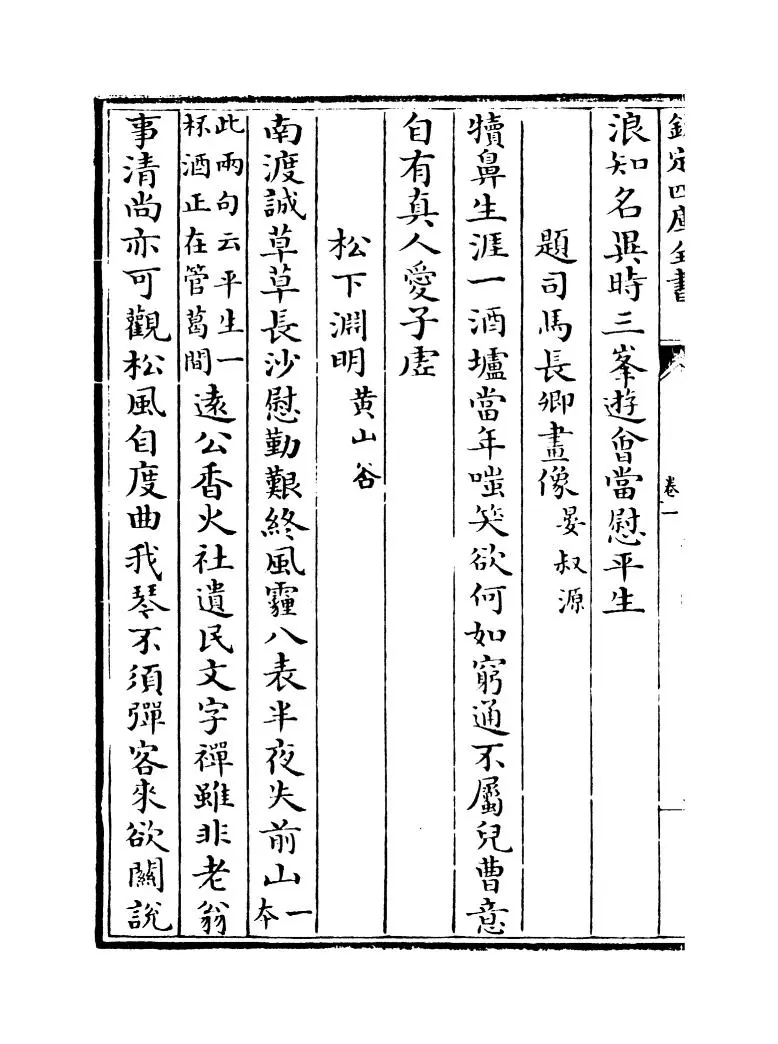 欽定四庫全書
卷一
浪知名異時三峯遊會當慰平生
題司馬長卿畫像 晏叔源
犢鼻生涯一酒壚當年嗤笑欲何如窮通不屬兒曹意
自有真人愛子虛
松下淵明 黄山谷
南渡誠草草長沙慰勤艱終風霾八表半夜失前山一本
此兩句云平生一
杯酒正在管葛間
遠公香火社遺民文字禪雖非老翁
事清尚亦可觀松風自度曲我琴不須彈客來欲關說